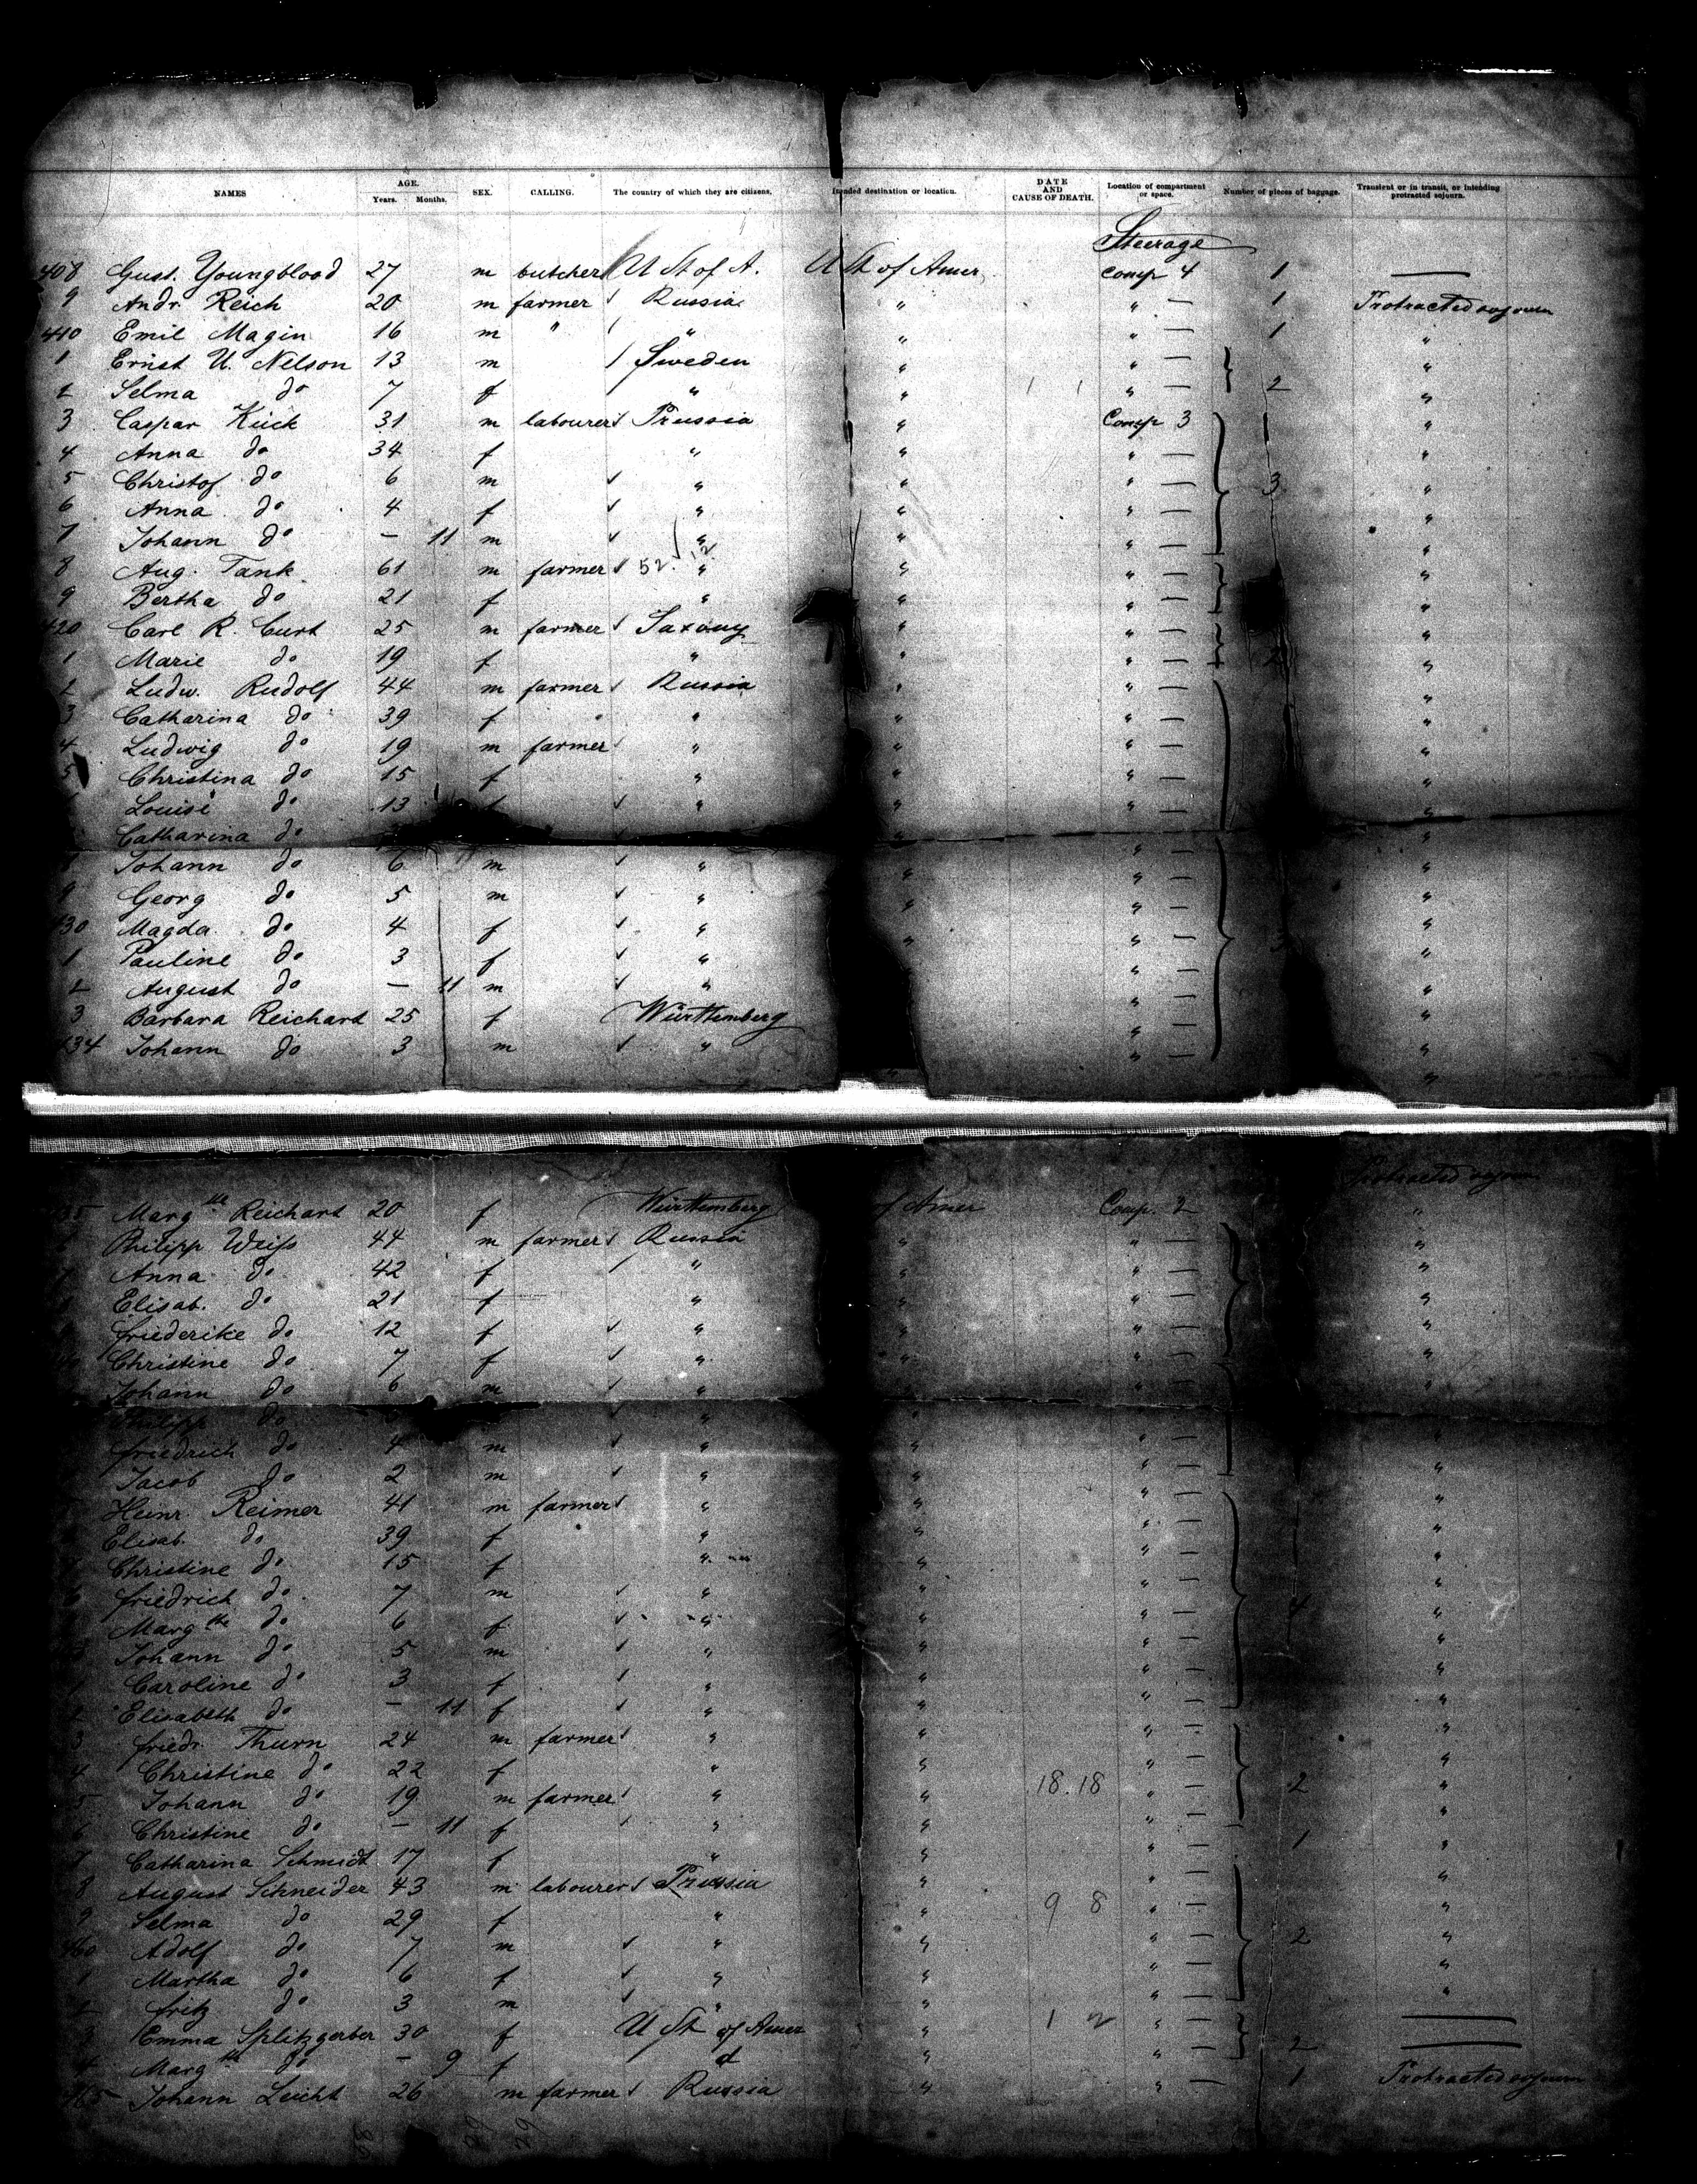 NAMES AGE. Years. Months. SEX. CALLING. The country of which they are citizens. Intended destination or location. DATE AND CAUSE OF DEATH. Location of compartment or space. Number of pieces of baggage. Transient or in transit, or intending protracted sojourn.
Steerage
408 Gust. Youngblood 27 m butcher U St of A. U St of Amer Comp 4 1 —
9 Andr. Reich 20 m farmer ✓ Russia " " — 1 Protracted sojourn
410 Emil Magin 16 m " " " " — 1 "
1 Ernst U. Nelson 13 m Sweden " " — "
2 Selma do 7 f " " " — 2 "
3 Caspar Kück 31 m labourer ✓ Prussia " Comp 3 "
4 Anna do 34 f " " " — "
5 Christof do 6 m ✓ " " " — 3 "
6 Anna do 4 f ✓ " " " — "
7 Johann do — 11 m ✓ " " " — "
8 Aug. Tank 61 m farmer ✓ 52. 12 " " " — "
9 Bertha do 21 f " " " — "
420 Carl R. Curt 25 m farmer ✓ Saxony " " — "
1 Marie do 19 f " " " — 2 "
2 Ludw. Rudolf 44 m farmer ✓ Russia " " — "
3 Catharina do 39 f " " " — "
4 Ludwig do 19 m farmer ✓ " " " — "
5 Christina do 15 f " " " — "
Louise do 13 f ✓ " " " — "
Catharina do " "
Johann do 6 m ✓ " " " — "
9 Georg do 5 m ✓ " " " — "
430 Magda. do 4 f ✓ " " " — "
1 Pauline do 3 f ✓ " " — "
2 August do — 11 m ✓ " " — "
3 Barbara Reichard 25 f Württemberg " — "
434 Johann do 3 m ✓ " " — "
Protracted sojourn
435 Marg.th Reichard 20 f Württemberg of Amer Comp. 2 "
Philipp Weiß 44 m farmer ✓ Russia " " — "
7 Anna do 42 f " " " — "
Elisab. do 21 f " " " — "
Friederike do 12 f ✓ " " " — "
Christine do 7 f ✓ " " " — "
Johann do 6 m ✓ " " — "
Philipp do ✓ " "
Friedrich do 4 m ✓ " " " —
Jacob do 2 m ✓ " " " — "
Heinr. Reimer 41 m farmer ✓ " " " — "
Elisab. do 39 f " " " — "
Christine do 15 f " " " — "
Friedrich do 7 m ✓ " " " — "
Marg.th do 6 f ✓ " " " — 4 "
Johann do 5 m ✓ " " " — "
1 Caroline do 3 f ✓ " " " — "
2 Elisabeth do — 11 f ✓ " " " — "
3 Friedr. Thurn 24 m farmer ✓ " " " — "
4 Christine do 22 f " " " — "
5 Johann do 19 m farmer ✓ " " 18.18 " — 2 "
6 Christine do — 11 f ✓ " " " — "
7 Catharina Schmidt 17 f " " " — 1 "
8 August Schneider 43 m labourer ✓ Prussia " " — "
9 Selma do 29 f " " 9 8 " — "
460 Adolf do 7 m ✓ " " " — 2 "
1 Martha do 6 f ✓ " " " — "
2 Fritz do 3 m ✓ " " " — "
3 Emma Splitzgerber 30 f U St of Amer " 1 2 " — —
4 Marg.th do — 9 f " " " — 2 —
465 Johann Leicht 26 m farmer ✓ Russia " " — 1 Protracted sojourn